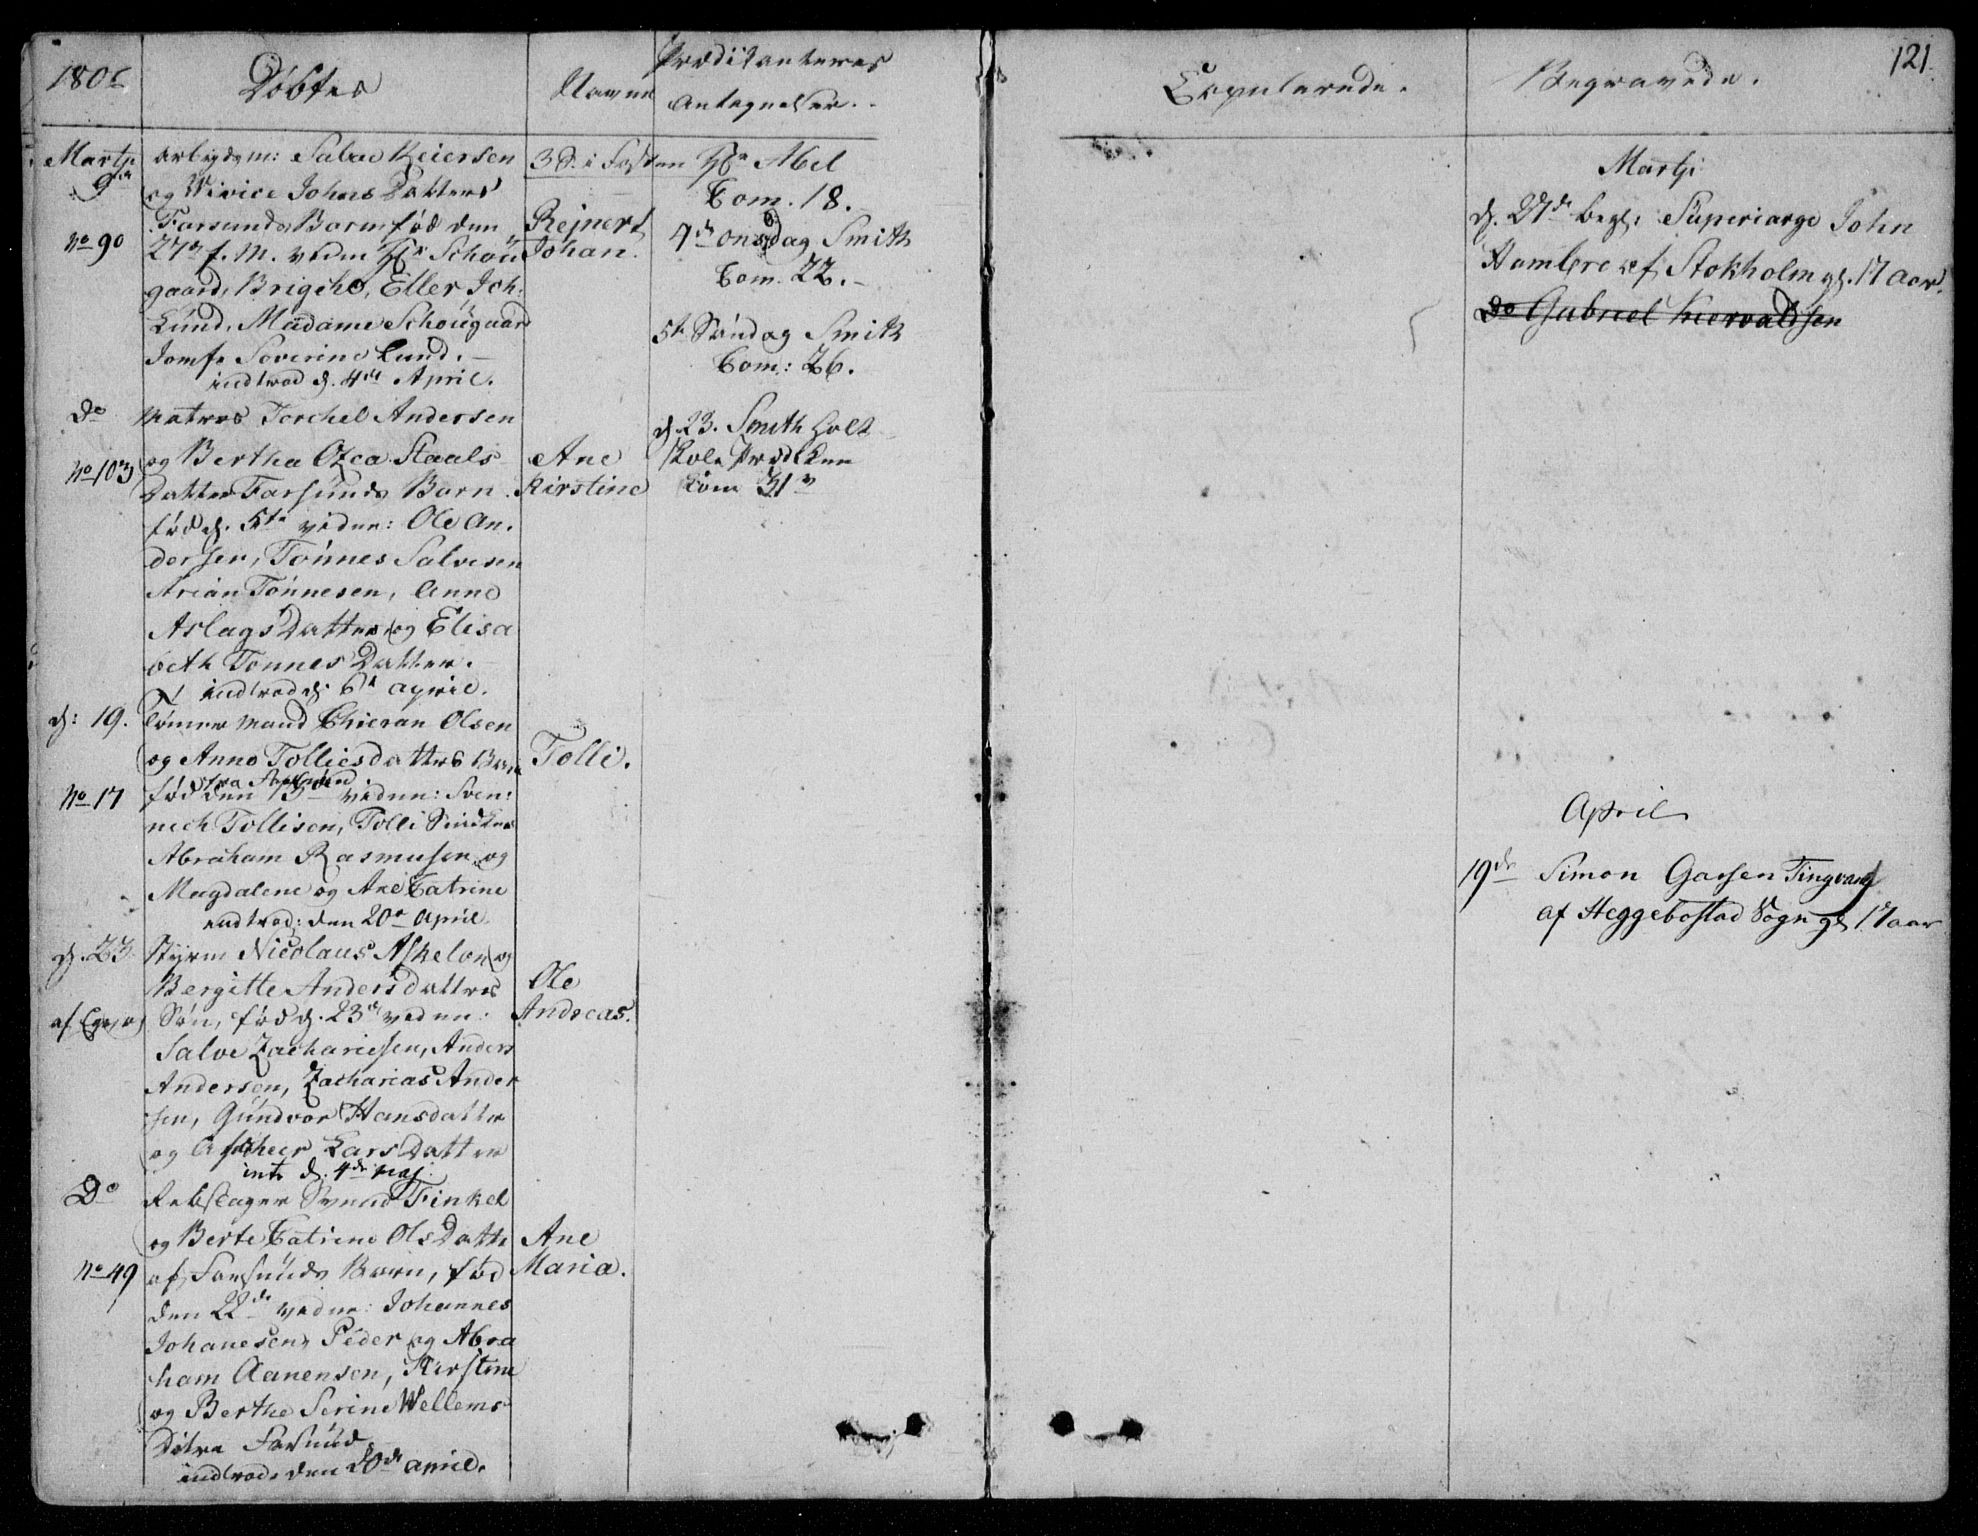 Døbte
Navne
Prædikanternes
Antegnelser.
Copulerede.
Begravede.
121.
Martji
9de
No 90
arbeydsm: Salve Reiersen
og Vivice Johns Datters
Farsunds Barn fød den
27de f. M. vidne Hr Schou
gaard, Eller Joh:
Lund, Madame Schougaard
Jomfr Severine Lund.
indtraad d. 4de April.
Reinert
Johan.
3 S. i Fasten Hr Abel
Com. 18.
7de onsdag Smith
Com. 22.
5te Søndag Smith
Com: 26.
d. 23. Smith holt
Com 31
Do
No 103
Matros Torchel Andersen
og Bertha Staals
Datter Farsunds Barn
fød d. 5te vidne: Ole An,
dersen, Tønnes Salvesen
Arian Tønnesen, Anne
Aslags Datter og Elisa
beth Tønnes Datter.
indtraad d. 6te april.
Ane
Kirstine
d: 19.
No 17
Tømmermand Olsen
og Anne Tolliesdatters Barn
fra Farsund
fød den 15de vidne: Sven:
nich Tollisen, Tolli
Abraham Rasmusen og
Magdalene og Ane Catrine
indtraad: den 20de April.
Tolli.
d. 23
Styrm Nicolaus og
Bergitte Andersdatters
Søn, fød d. 23de vidne:
Salve Zachariesen, Anders
Andersen, Zacharias Ander
sen, Gundvor Hansdatter
og Lars Datter
int d. 4de Maj
Ole
Andreas.
Do
No 49
Rebslager Svend Finkel
og Berte Catrine Ols Datter
af Farsunds Barn, fød
den 22de vidne: Johannes
Johanesen, Peder og Abra
ham Aanensen, Kirstine
og Berthe Serine Wellems
Døtre Farsund
indtraad den 20de april.
Ane
Maria.
Martji
d. 27de begr: John
Hambre af Stokholm gl. 17 aar.
Do Gabriel
April
19de Simon Tingvatn
af Heggebostad Sogn gl 17 aar